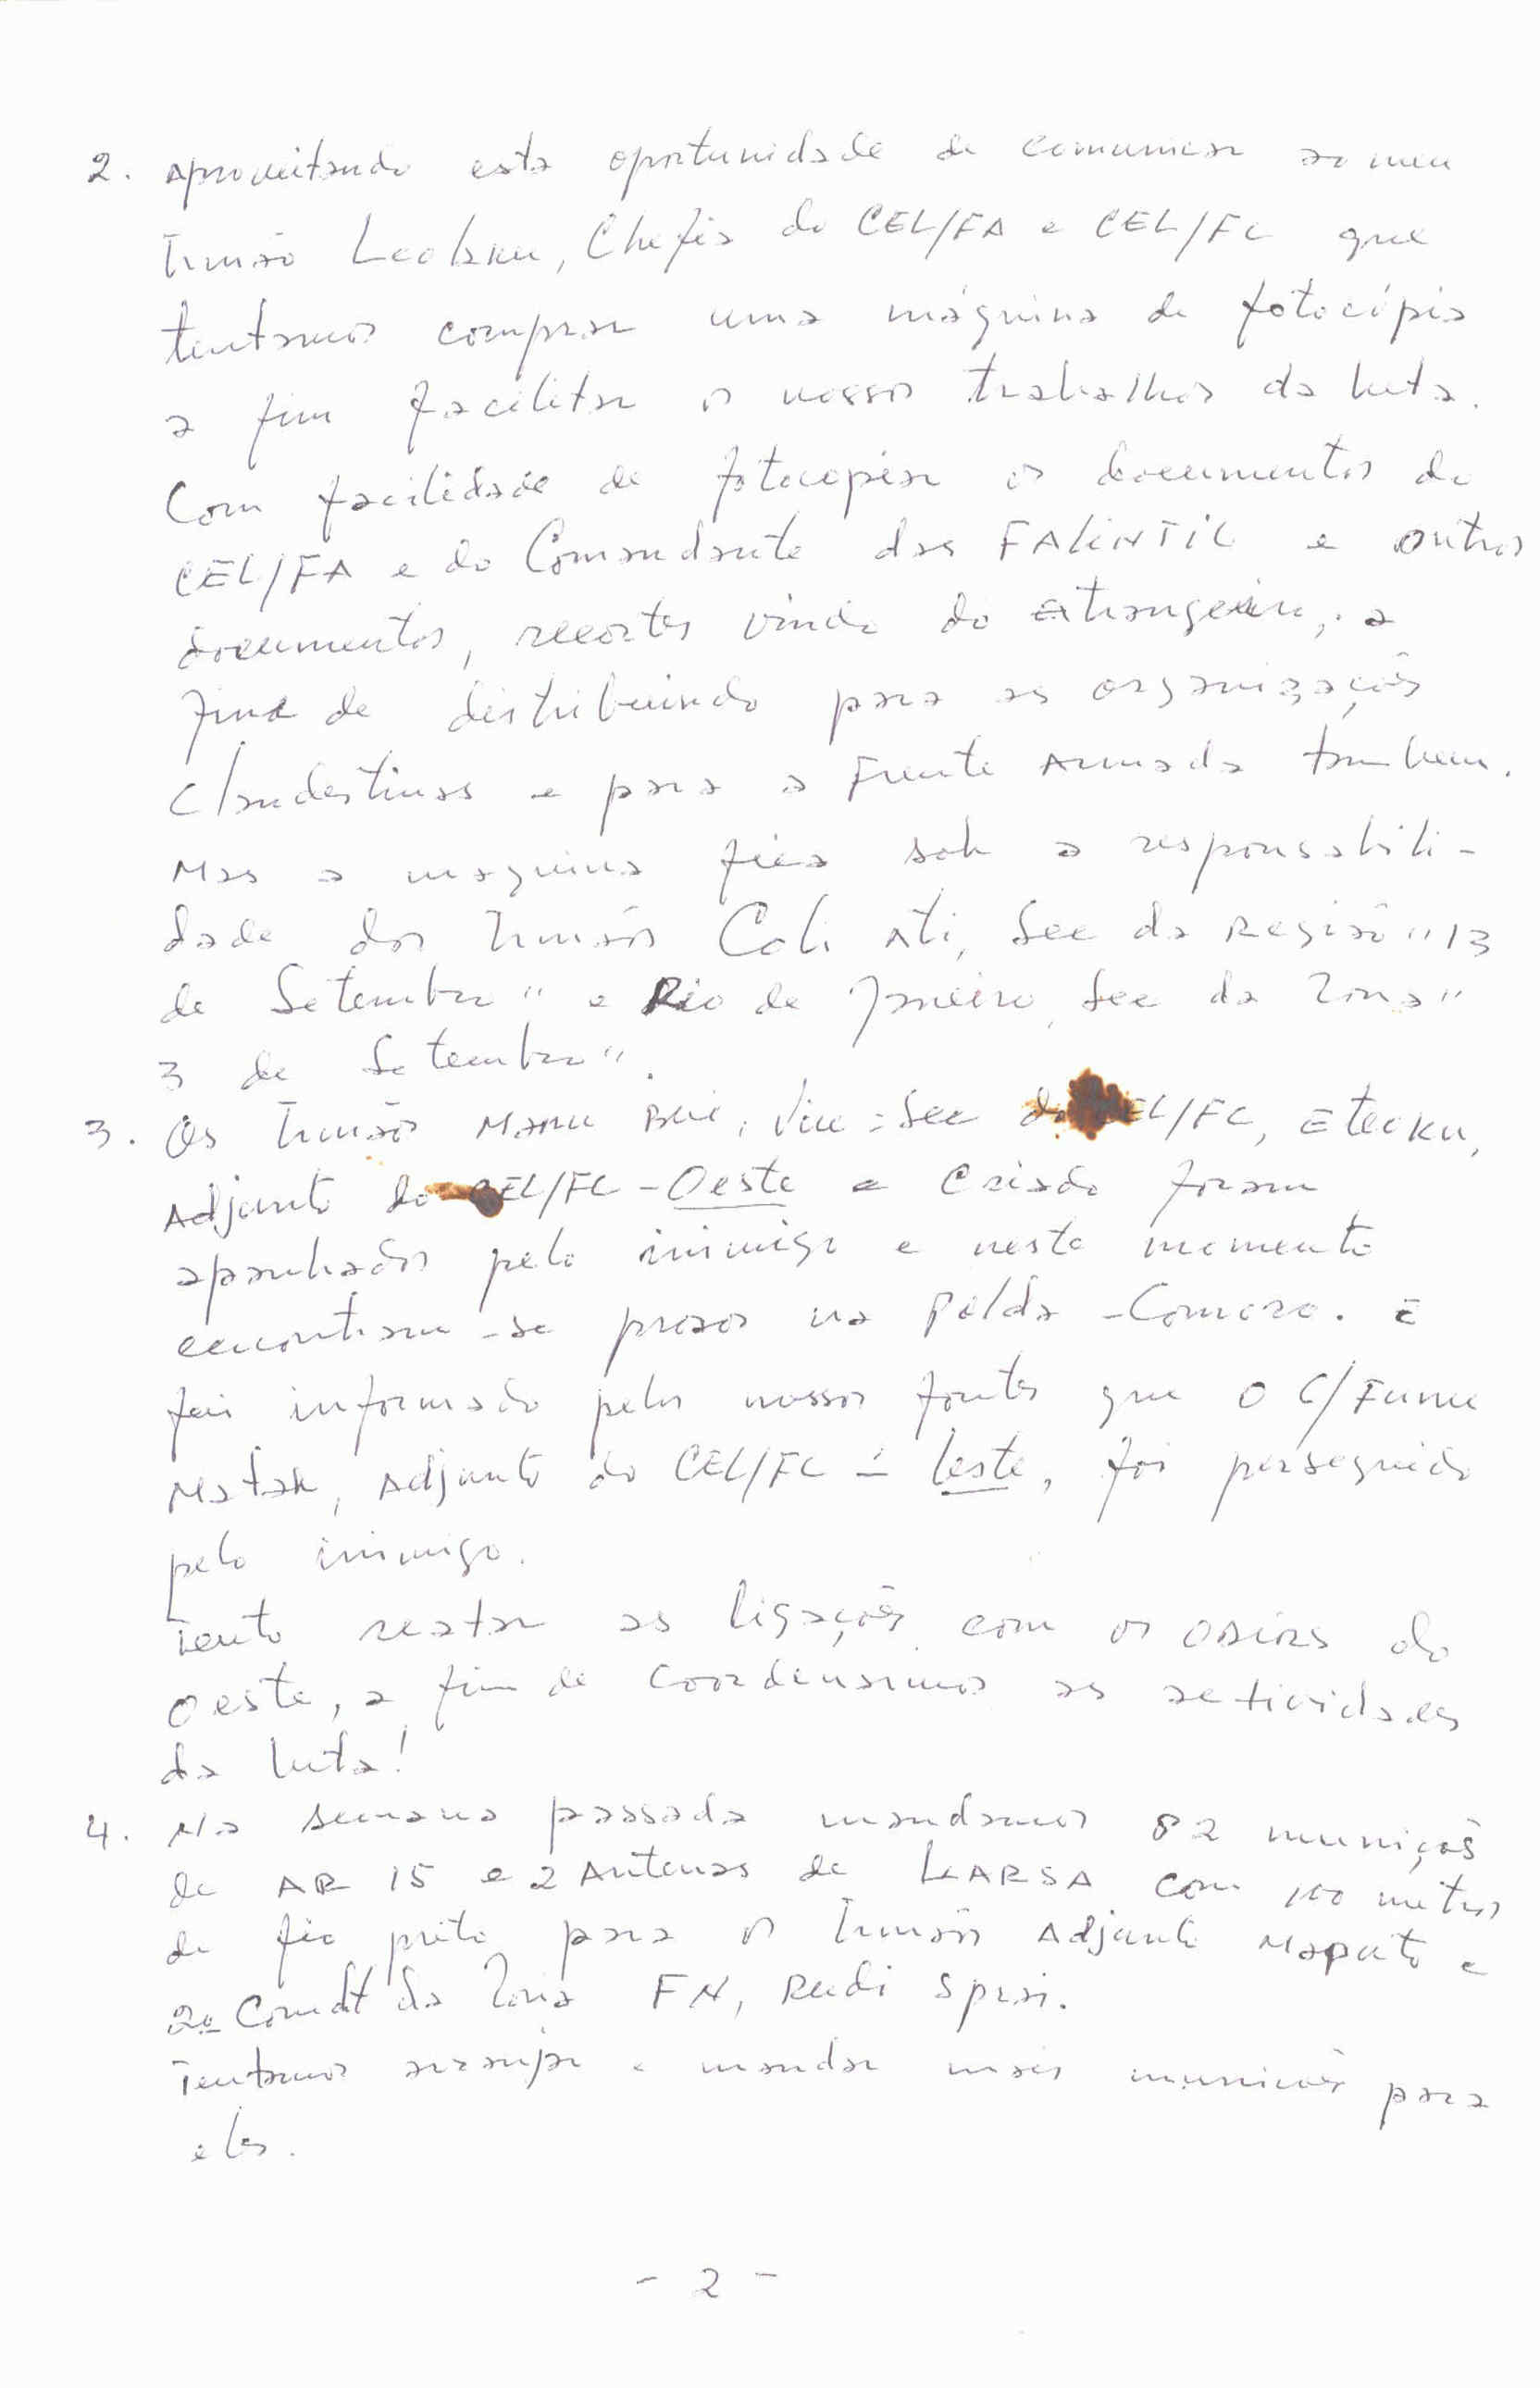 2. Aproveitando esta oportunidade de comunicar ao meu
Irmão Leolaku, Chefia do CEL/FA e CEL/FC que
tentamos comprar uma máquina de fotocópia
a fim facilitar os nossos trabalhos da luta.
Com facilidade de fotocopiar os documentos do
CEL/FA e do Comandante das FALINTIL e outros
documentos, recortes vindo do etrangeiro, a
fim de distribuindo para as organizações
Clandestinas e para a Frente Armada tambem.
Mas a maquina fica sob a responsabili-
dade dos Irmãos Coli Ati, Sec da Região "13
de Setembro" e Rio de Janeiro, Sec da Zona "
3 de Setembro".
3. Os Irmãos Manu Bui, Vice-Sec do CEL/FC, Eteku,
Adjunto do CEL/FC-Oeste e Criado foram
apanhados pelo inimigo e neste momento
encontram-se presos na Polda-Comoro. E
foi informado pelos nossos fontes que o C/Funu
Matak, Adjunto do CEL/FC - Leste, foi perseguido
pelo inimigo.
Tento reatar as ligações com os do
Oeste, a fim de coordenarmos as actividades
da luta!
4. Na semana passada mandamos 82 munições
de AR 15 e 2 Antenas de com 100 metros
de fio preto para os Irmãos Adjunto Maputo e
2º Comdt da Zona FN, Rudi
Tentamos arranjar e mandar mais munições para
eles.
- 2 -